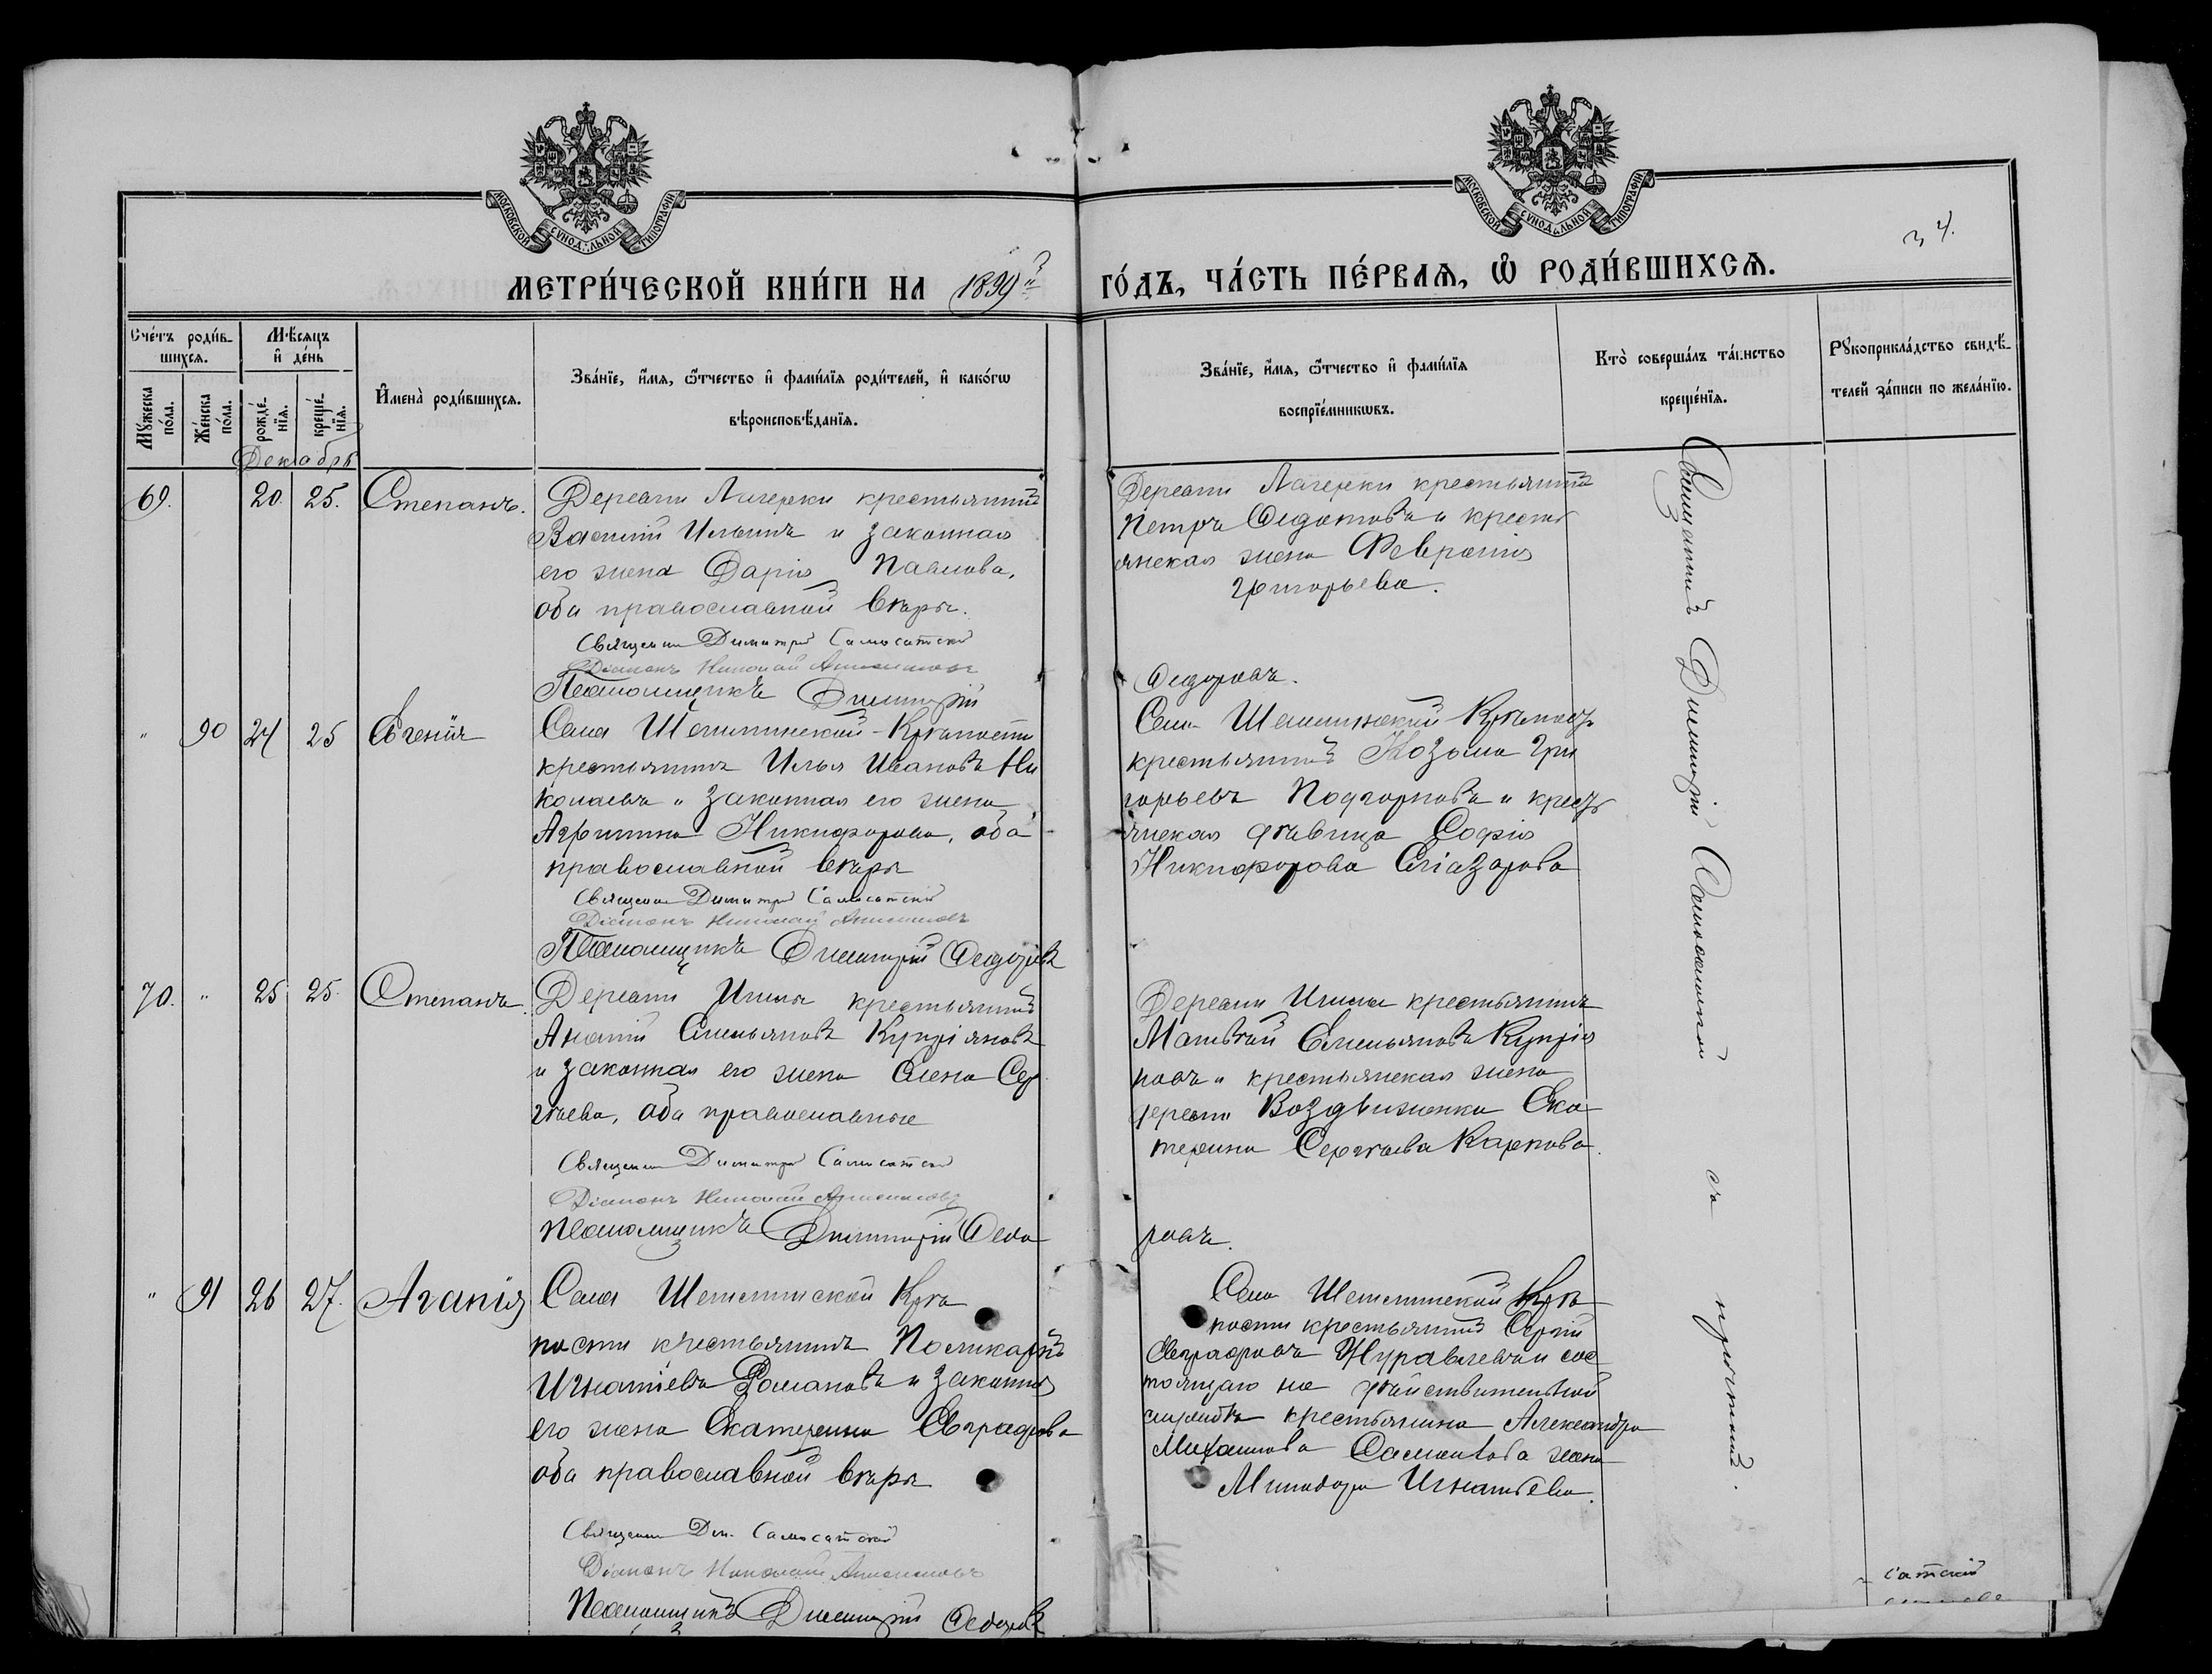 МОСКОВСКОЙ СѴНОДАЛЬНОЙ ТИПОГРАФІИ
МОСКОВСКОЙ СѴНОДАЛЬНОЙ ТИПОГРАФІИ
34.
МЕТРИ́ЧЕСКОЙ КНИ́ГИ НА 1899й
ГО́ДЪ, ЧА́СТЬ ПЕ́РВАѦ, Ѽ РОДИ́ВШИХСѦ.
Сче́тъ роди́в-
шихсѧ.
Мꙋ́жеска по́ла.
Же́нска по́ла.
Мѣ́сѧцъ
и҆ де́нь
рожде́-нїѧ.
креще́-нїѧ.
И҆мена̀ роди́вшихсѧ.
Зва́нїе, и҆́мѧ, ѻ҆́тчество и҆ фами́лїѧ роди́телей, и҆ како́гѡ
вѣроисповѣ́данїѧ.
Зва́нїе, и҆́мѧ, ѻ҆́тчество и҆ фами́лїѧ
воспрїе́мникѡвъ.
Кто̀ соверша́лъ та́инство
креще́нїѧ.
Рꙋкоприкла́дство свидѣ́-
телей за́писи по жела́нїю.
Декабрь
69. 20. 25. Степанъ.
Деревни Лагерки крестьянинъ
Василій Ильинъ и законная
его жена Дарія Павлова,
оба православной вѣры.
Священникъ Димитрій Самосатскій
Діаконъ Николай
Псаломщикъ Димитрій
Деревни Лагерки крестьянинъ
Петръ Федотовъ и кресть
янская жена Февронія
Григорьева.
Федоровъ.
" 90 24 25 Евгенія
Села Шешминской-Крѣпости
крестьянинъ Илья Ивановъ Ни
колаевъ и законная его жена
Агрипина Никифорова, оба
православной вѣры
Священникъ Димитрій Самосатскій
Діаконъ Николай
Псаломщикъ Димитрій Федоровъ
Села Шешминской Крѣпости
крестьянинъ Козьма Гри
горьевъ Подгорновъ и крест
янская дѣвица Софія
Никифорова Еліазарова
70. " 25 25. Степанъ.
Деревни крестьянинъ
Емельяновъ Купріяновъ
и законная его жена Елена Сер
гѣева, оба православные
Священникъ Димитрій Самосатскій
Діаконъ Николай
Псаломщикъ Димитрій Федо
Деревни крестьянинъ
Матвѣй Емельяновъ Купрія
новъ и крестьянская жена
дерев. Воздвиженки Ека
терина Сергѣева Карпова.
ровъ.
" 91 26 27. Агапія
Села Шешминской Крѣ
пости крестьянинъ Поликарпъ
Игнатіевъ Романовъ и законная
его жена Екатерина Евграфова
оба православной вѣры
Священникъ Дим. Самосатскій
Діаконъ Николай
Псаломщикъ Димитрій Федоровъ
Села Шешминской Крѣ
пости крестьянинъ Сергій
Евграфовъ Журавлевъ и сос
тоящаго на дѣйствительной
службѣ крестьянина Александра
Михаилова жена
Минодора Игнатьева.
Священникъ Димитрій Самосатскій съ причтомъ.
сатскій